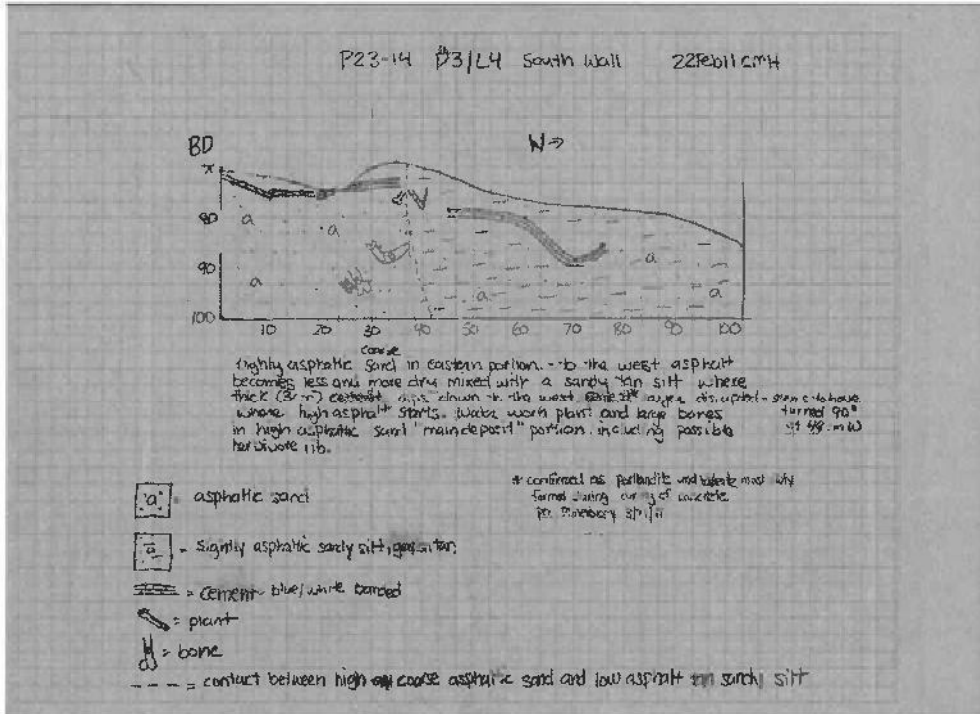 P23-14 D3/L4 South Wall 22Feb11 CMH
BD W⇒
80
90
100
10 20 30 40 50 60 70 80 90 100
coarse
Highly asphaltic sand in eastern portion - to the west asphalt
becomes less and more dry mixed with a sandy tan silt where
thick (3cm) dips down to the west. disrupted - seems to have
where high asphalt starts. Water worn plant and large bones turned 90°
in high asphaltic sand "main deposit" portion. including possible
herbivore rib.
* confirmed as portlandite and most likely
formed during curing of concrete
per 3/11/11
a = asphaltic sand
a = Slightly asphaltic sandy silt, tan
= cement - blue/white banded
= plant
= bone
--- = contact between high coarse asphaltic sand and low asphalt tan sandy silt
a a a a a a